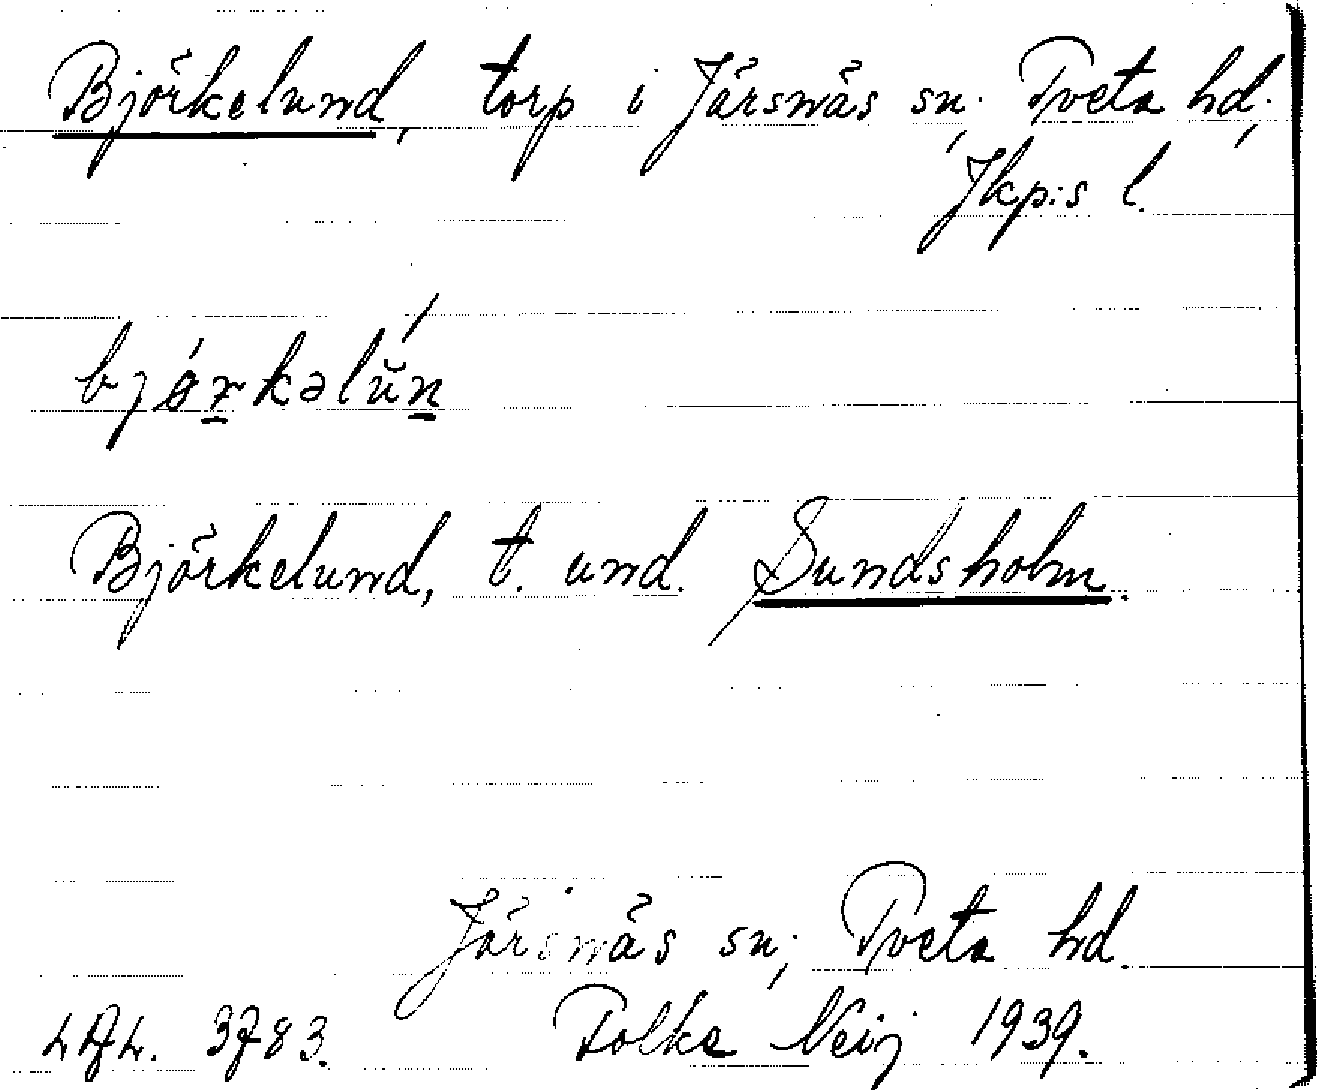 Björkelund, torp i Järsnäs sn, Tveta hd,
Jkp:s l.
Björkelund, t. und. Sundsholm.
Järsnäs sn, Tveta hd.
3783. Folke Neij 1939.